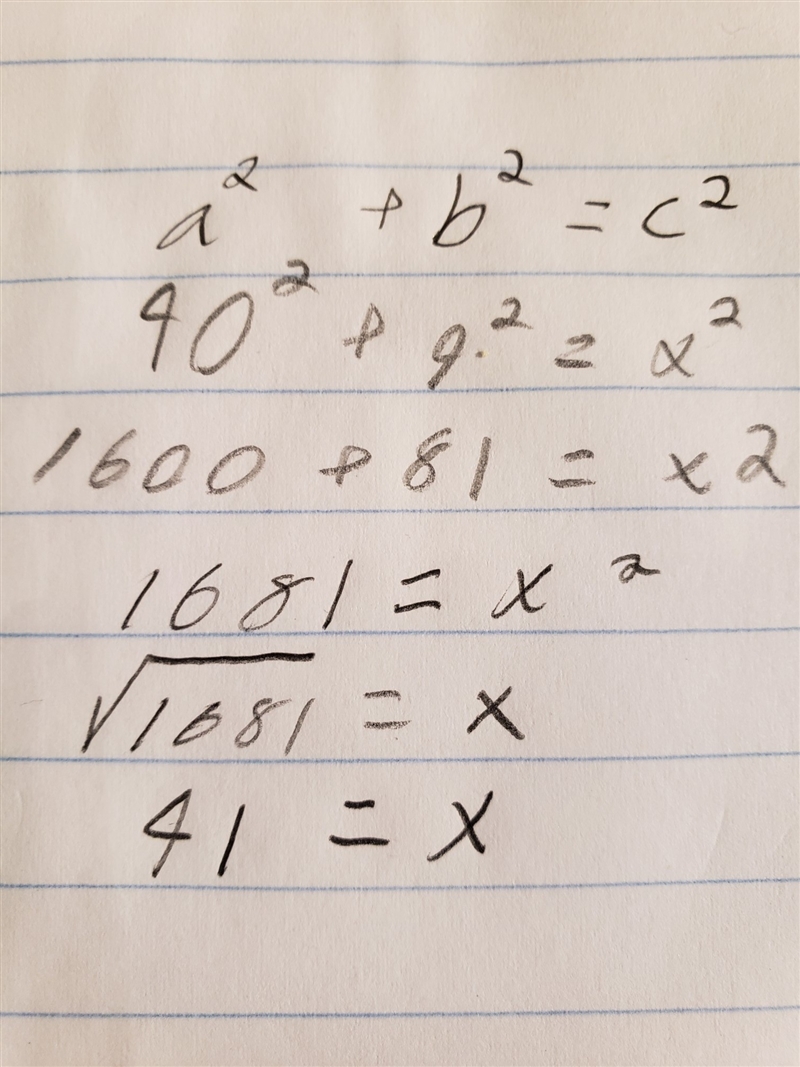 a² + b² = c²
40² + 9² = x²
1600 + 81 = x2
1681 = x²
√1681 = x
41 = x